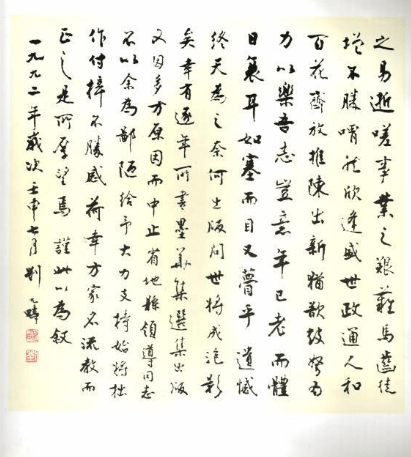 之易逝嗟事業之艱難馬齒徒
增不勝喟然欣逢盛世政通人和
百花齊放推陳出新猶歡鼓努為
力以樂吾志豈意年已老而體
日衰耳如塞而目又瞢乎遺憾
終天為之奈何出版問世將成泡影
矣幸有逐年所書墨蹟集選集出版
又因多方原因而中止省地縣領導同志
不以余為鄙陋給予大力支持始將拙
作付梓不勝感荷幸方家名流教而
正之是所厚望焉謹此以為叙
一九九二年歲次壬申七月劉